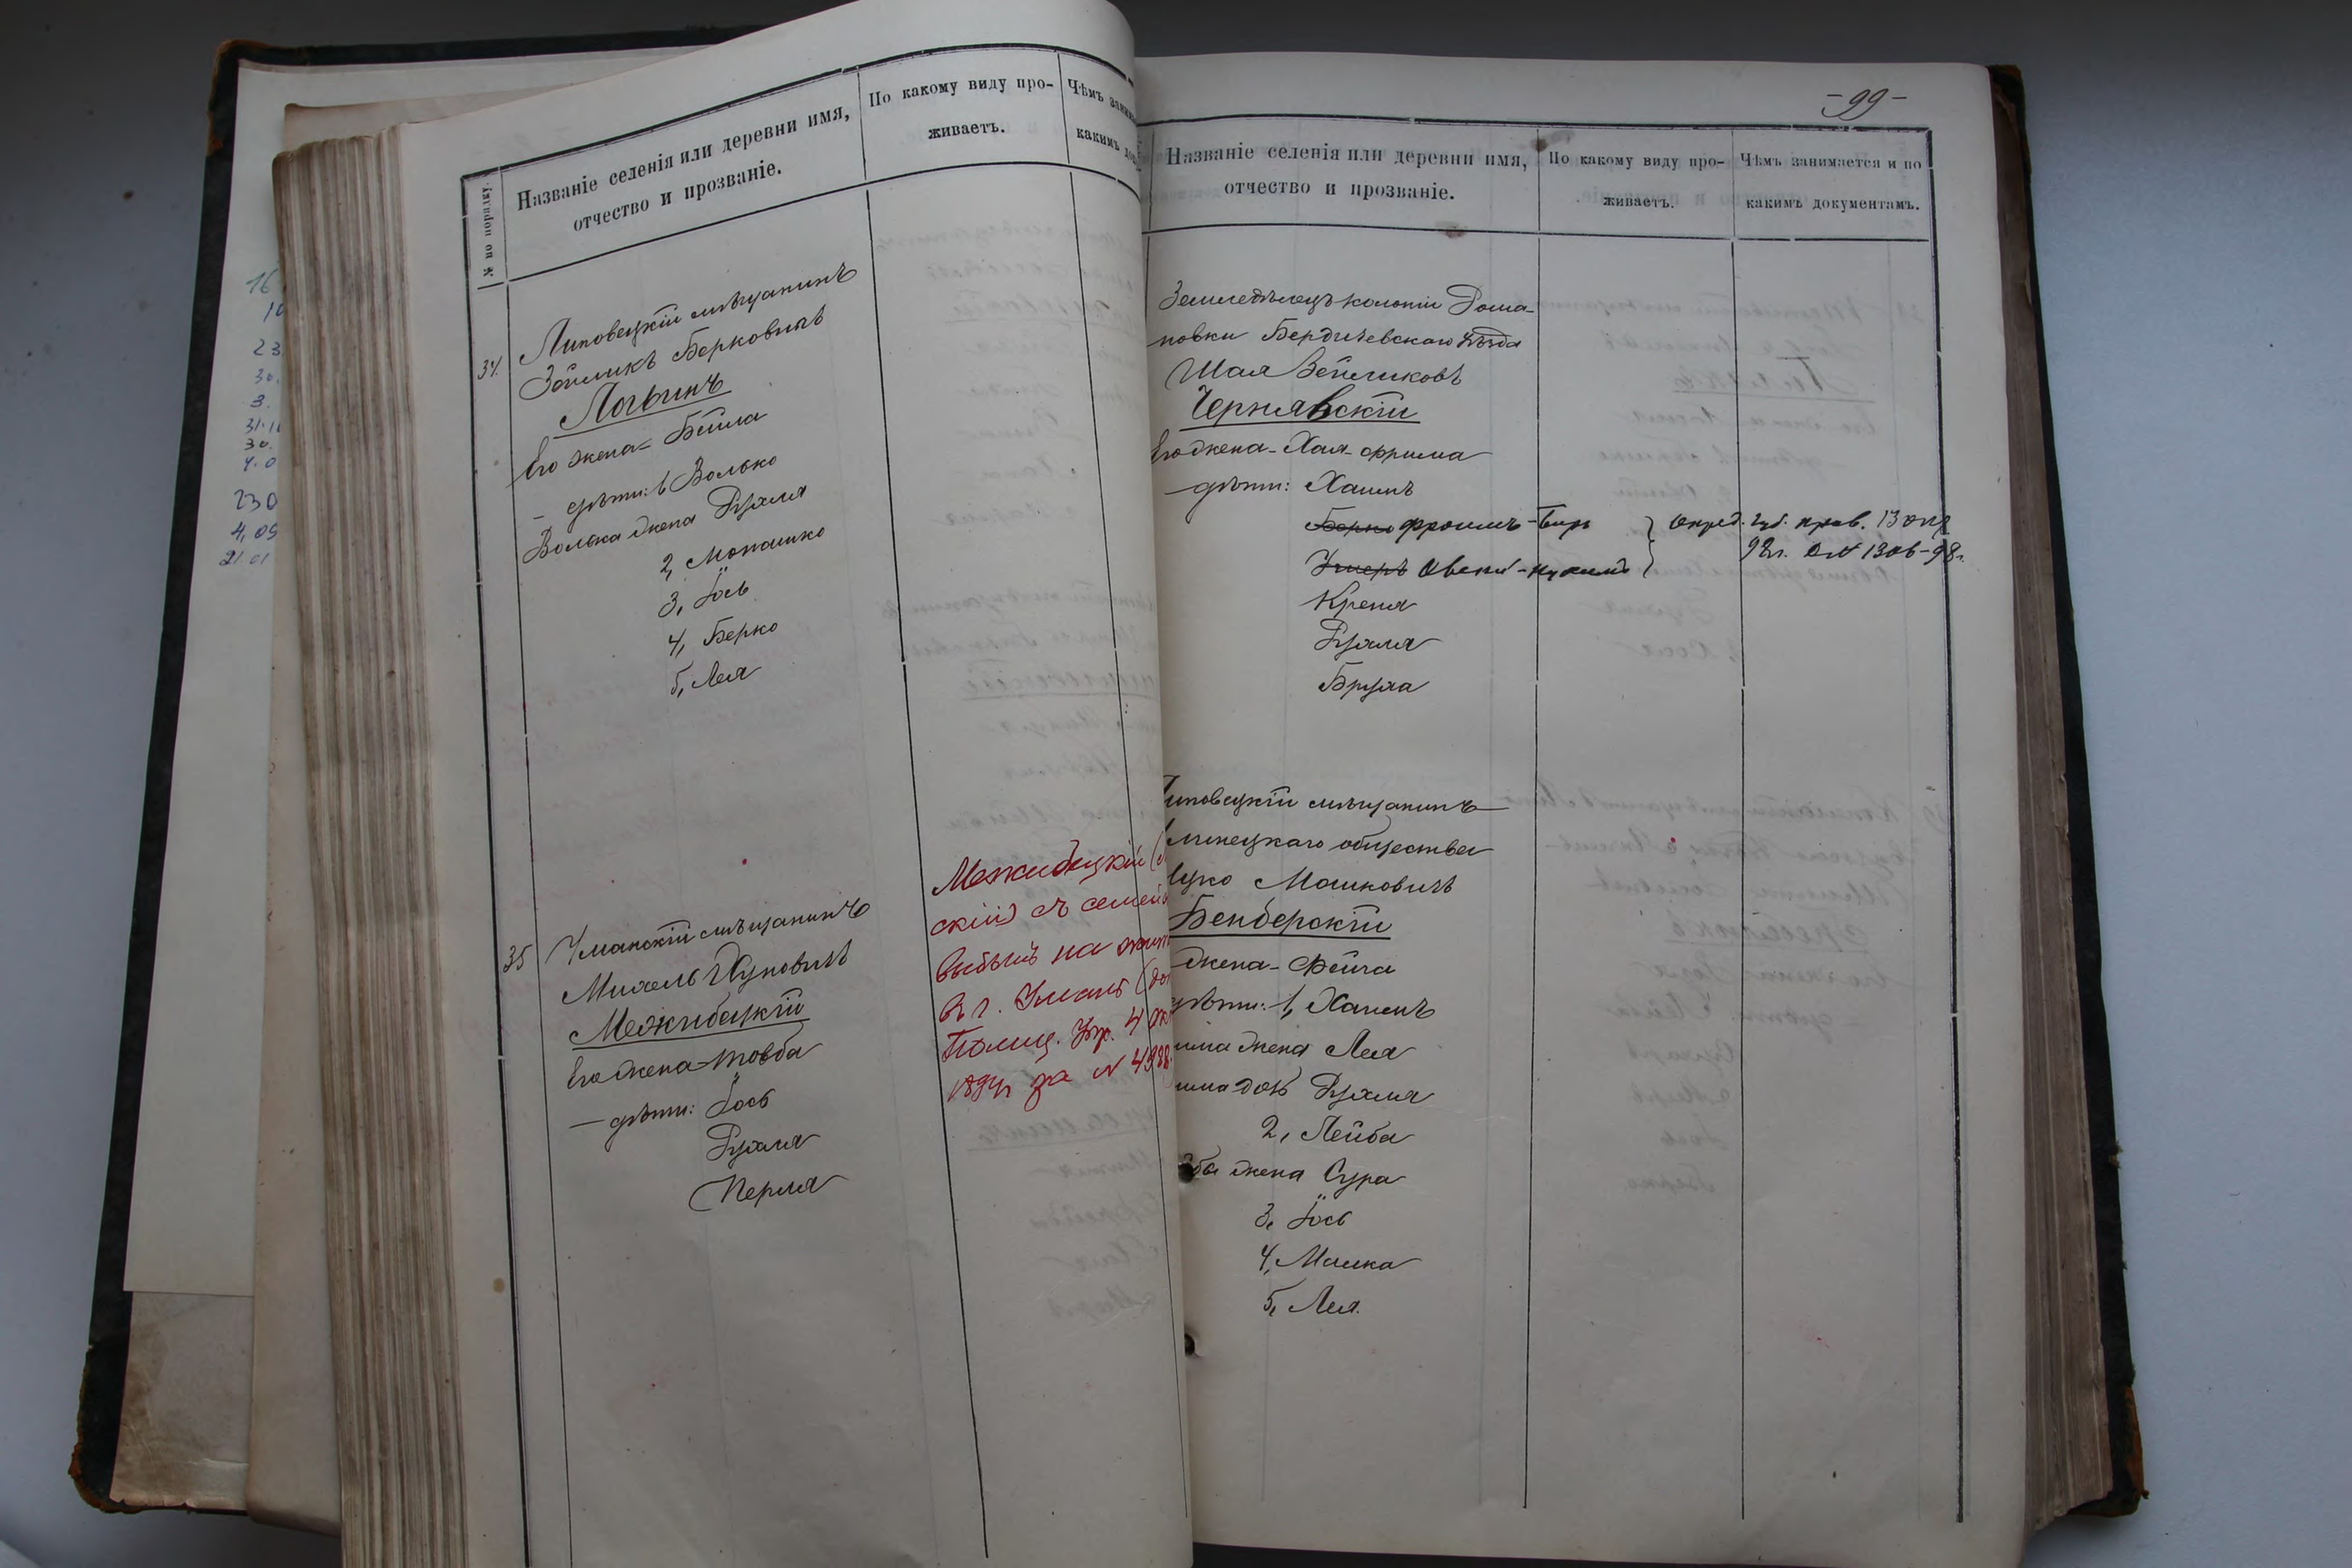 16
10
23
30.
3.
31.
30.
4.0
230
4,09
21.01
№ по порядку.
Названіе селенія или деревни имя,
отчество и прозваніе.
По какому виду про-
живаетъ.
Чѣмъ
какимъ
34.
Липовецкій мѣщанинъ
Зейликъ Берковичъ
Логвинъ
Его жена = Бейла
- дѣти: 1, Волько
Волька жена Рухля
2, Монашко
3, Іось
4, Берко
5, Лея
35
Уманскій мѣщанинъ
Михель Нуховичъ
Межибецкій
Его жена - Товба
- дѣти: Іось
Рухля
Перля
Межибецкій
скій) съ семей
выбылъ на жит
въ г. Умань
Полиц. Упр. 4
1894г за № 4988
- 99 -
Названіе селенія или деревни имя,
отчество и прозваніе.
По какому виду про-
живаетъ.
Чѣмъ занимается и по
какимъ документамъ.
Земледѣлецъ колоніи Рома-
новки Бердичевскаго уѣзда
Шая Зейликовъ
Чернявскій
Его жена - Хая - Фрима
- дѣти: Хаимъ
Берко Фроимъ - Беръ } опред. губ. прав. 13
Умеръ - Нухимъ } 98г. № 1306 - 98г.
Креня
Рухля
Бруха
иповецкій мѣщанинъ
линецкаго общества
цко Мошковичъ
Бендерскій
жена - Фейга
дѣти: 1, Хаимъ
има жена Лея
има дочь Рухля
2, Лейба
йба жена Сура
3, Іось
4, Машка
5, Лея.